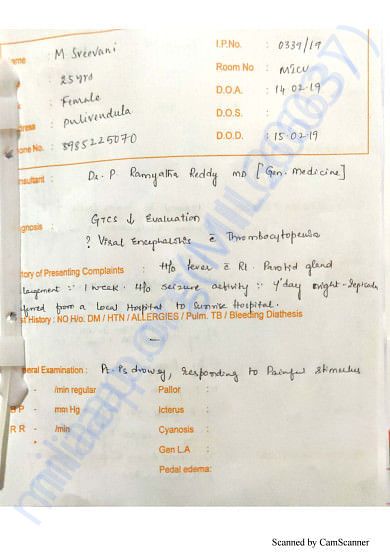 ame : M Sreevani I.P.No. : 0339/19
25 yrs Room No : MICU
Female D.O.A. : 14-02-19
ress : Pulivendula D.O.S. :
one No. : 8985225070 D.O.D. : 15-02-19
nsultant : Dr. P Ramyatha Reddy MD [Gen. Medicine]
gnosis : GTCS ↓ Evaluation
? Viral Encephalitis c̄ Thrombocytopenia
tory of Presenting Complaints : H/o fever c̄ Rt. Parotid gland
largement :: 1 week. H/o seizure activity :: 4th day night -
ferred from a Local Hospital to Sunrise Hospital.
st History : NO H/o. DM / HTN / ALLERGIES / Pulm. TB / Bleeding Diathesis
—
eral Examination : Pt. is drowsy, responding to Painful stimulus
- /min regular Pallor :
B P - mm Hg Icterus :
R R - /min Cyanosis :
Gen L.A :
Pedal edema:
Scanned by CamScanner